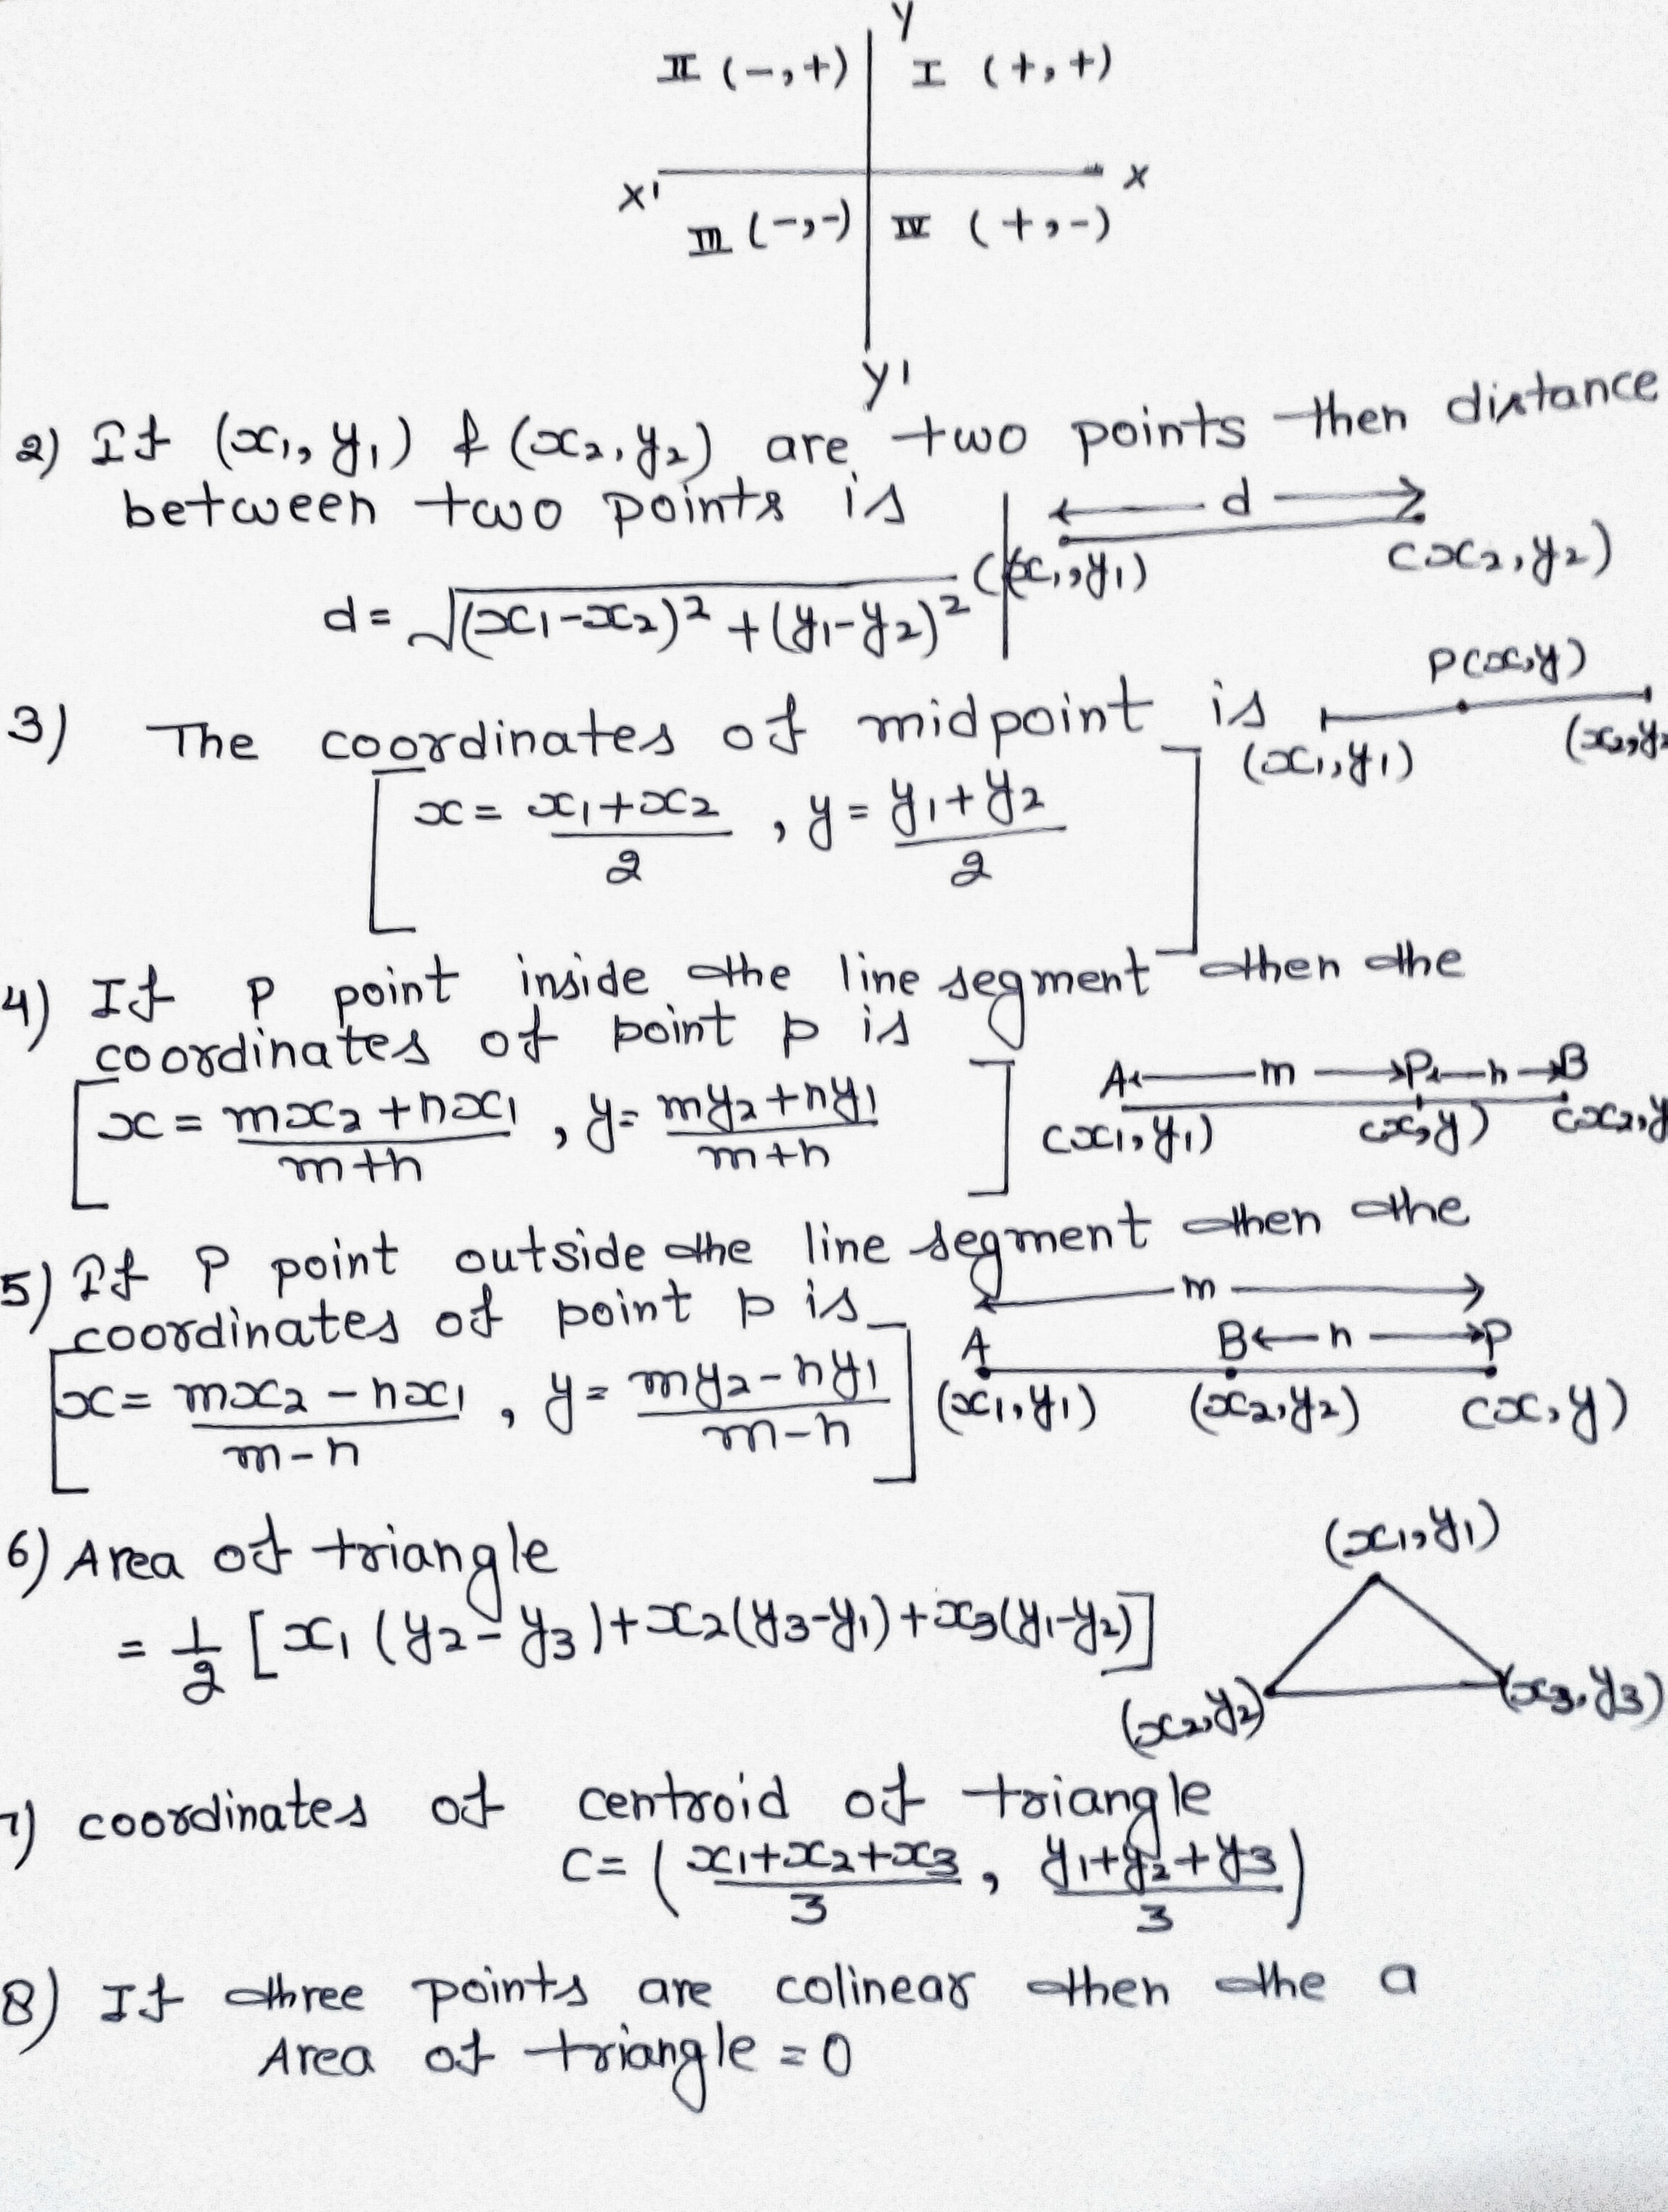 Y
II (-,+) I (+,+)
X' X
III (-,-) IV (+,-)
Y'
2) If (x₁, y₁) & (x₂, y₂) are two points then distance
between two points is
d
(x₁, y₁) (x₂, y₂)
d = √(x₁-x₂)² + (y₁-y₂)²
P(x,y)
3) The coordinates of midpoint is
(x₁, y₁) (x₂, y₂
[x = x₁+x₂/2 , y = y₁+y₂/2]
4) If P point inside the line segment then the
coordinates of point p is
A m P n B
(x₁, y₁) (x, y) (x₂, y
[x = mx₂+nx₁/m+n , y = my₂+ny₁/m+n]
5) If P point outside the line segment then the
coordinates of point p is
m
A B n P
(x₁, y₁) (x₂, y₂) (x, y)
[x = mx₂-nx₁/m-n , y = my₂-ny₁/m-n]
6) Area of triangle
= 1/2 [x₁ (y₂-y₃)+x₂(y₃-y₁)+x₃(y₁-y₂)]
(x₁, y₁)
(x₂, y₂) (x₃, y₃)
7) coordinates of centroid of triangle
C = (x₁+x₂+x₃/3 , y₁+y₂+y₃/3)
8) If three points are colinear then the a
Area of triangle = 0